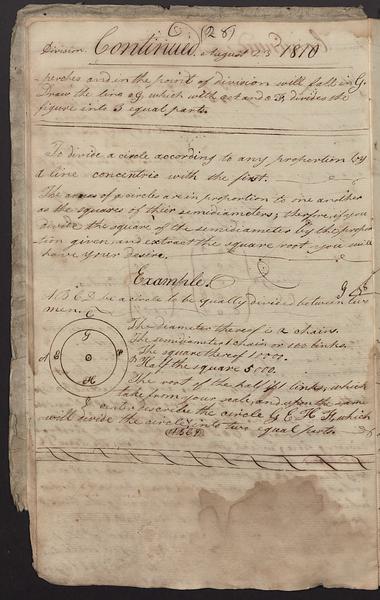 (28)
Division Continued August 23 1810
perches and in the point of division will fall in G.
Draw the line aG, which with act and a F, divides the
figure into 3 equal parts.
To divide a circle according to any proportion by
a line concentric with the first.
The areas of a circles are in proportion to one another
as the squares of their semidiameters; therefore, if you
divide the square of the semidiameter by the propor
tion given and extract the square root you will
have your desire.
Example.
A B C D be a circle to be equally divided between two
men.
The diameter thereof is 2 chains.
The semidiameter 1 chain or 100 links.
The square thereof 10000.
Half the square 5000.
The root of the half 71 links, which
take from your scale, and upon the same
center describe the circle G E H F, which
will divide the circle into two equal parts
C
G
A
E
F
D
H